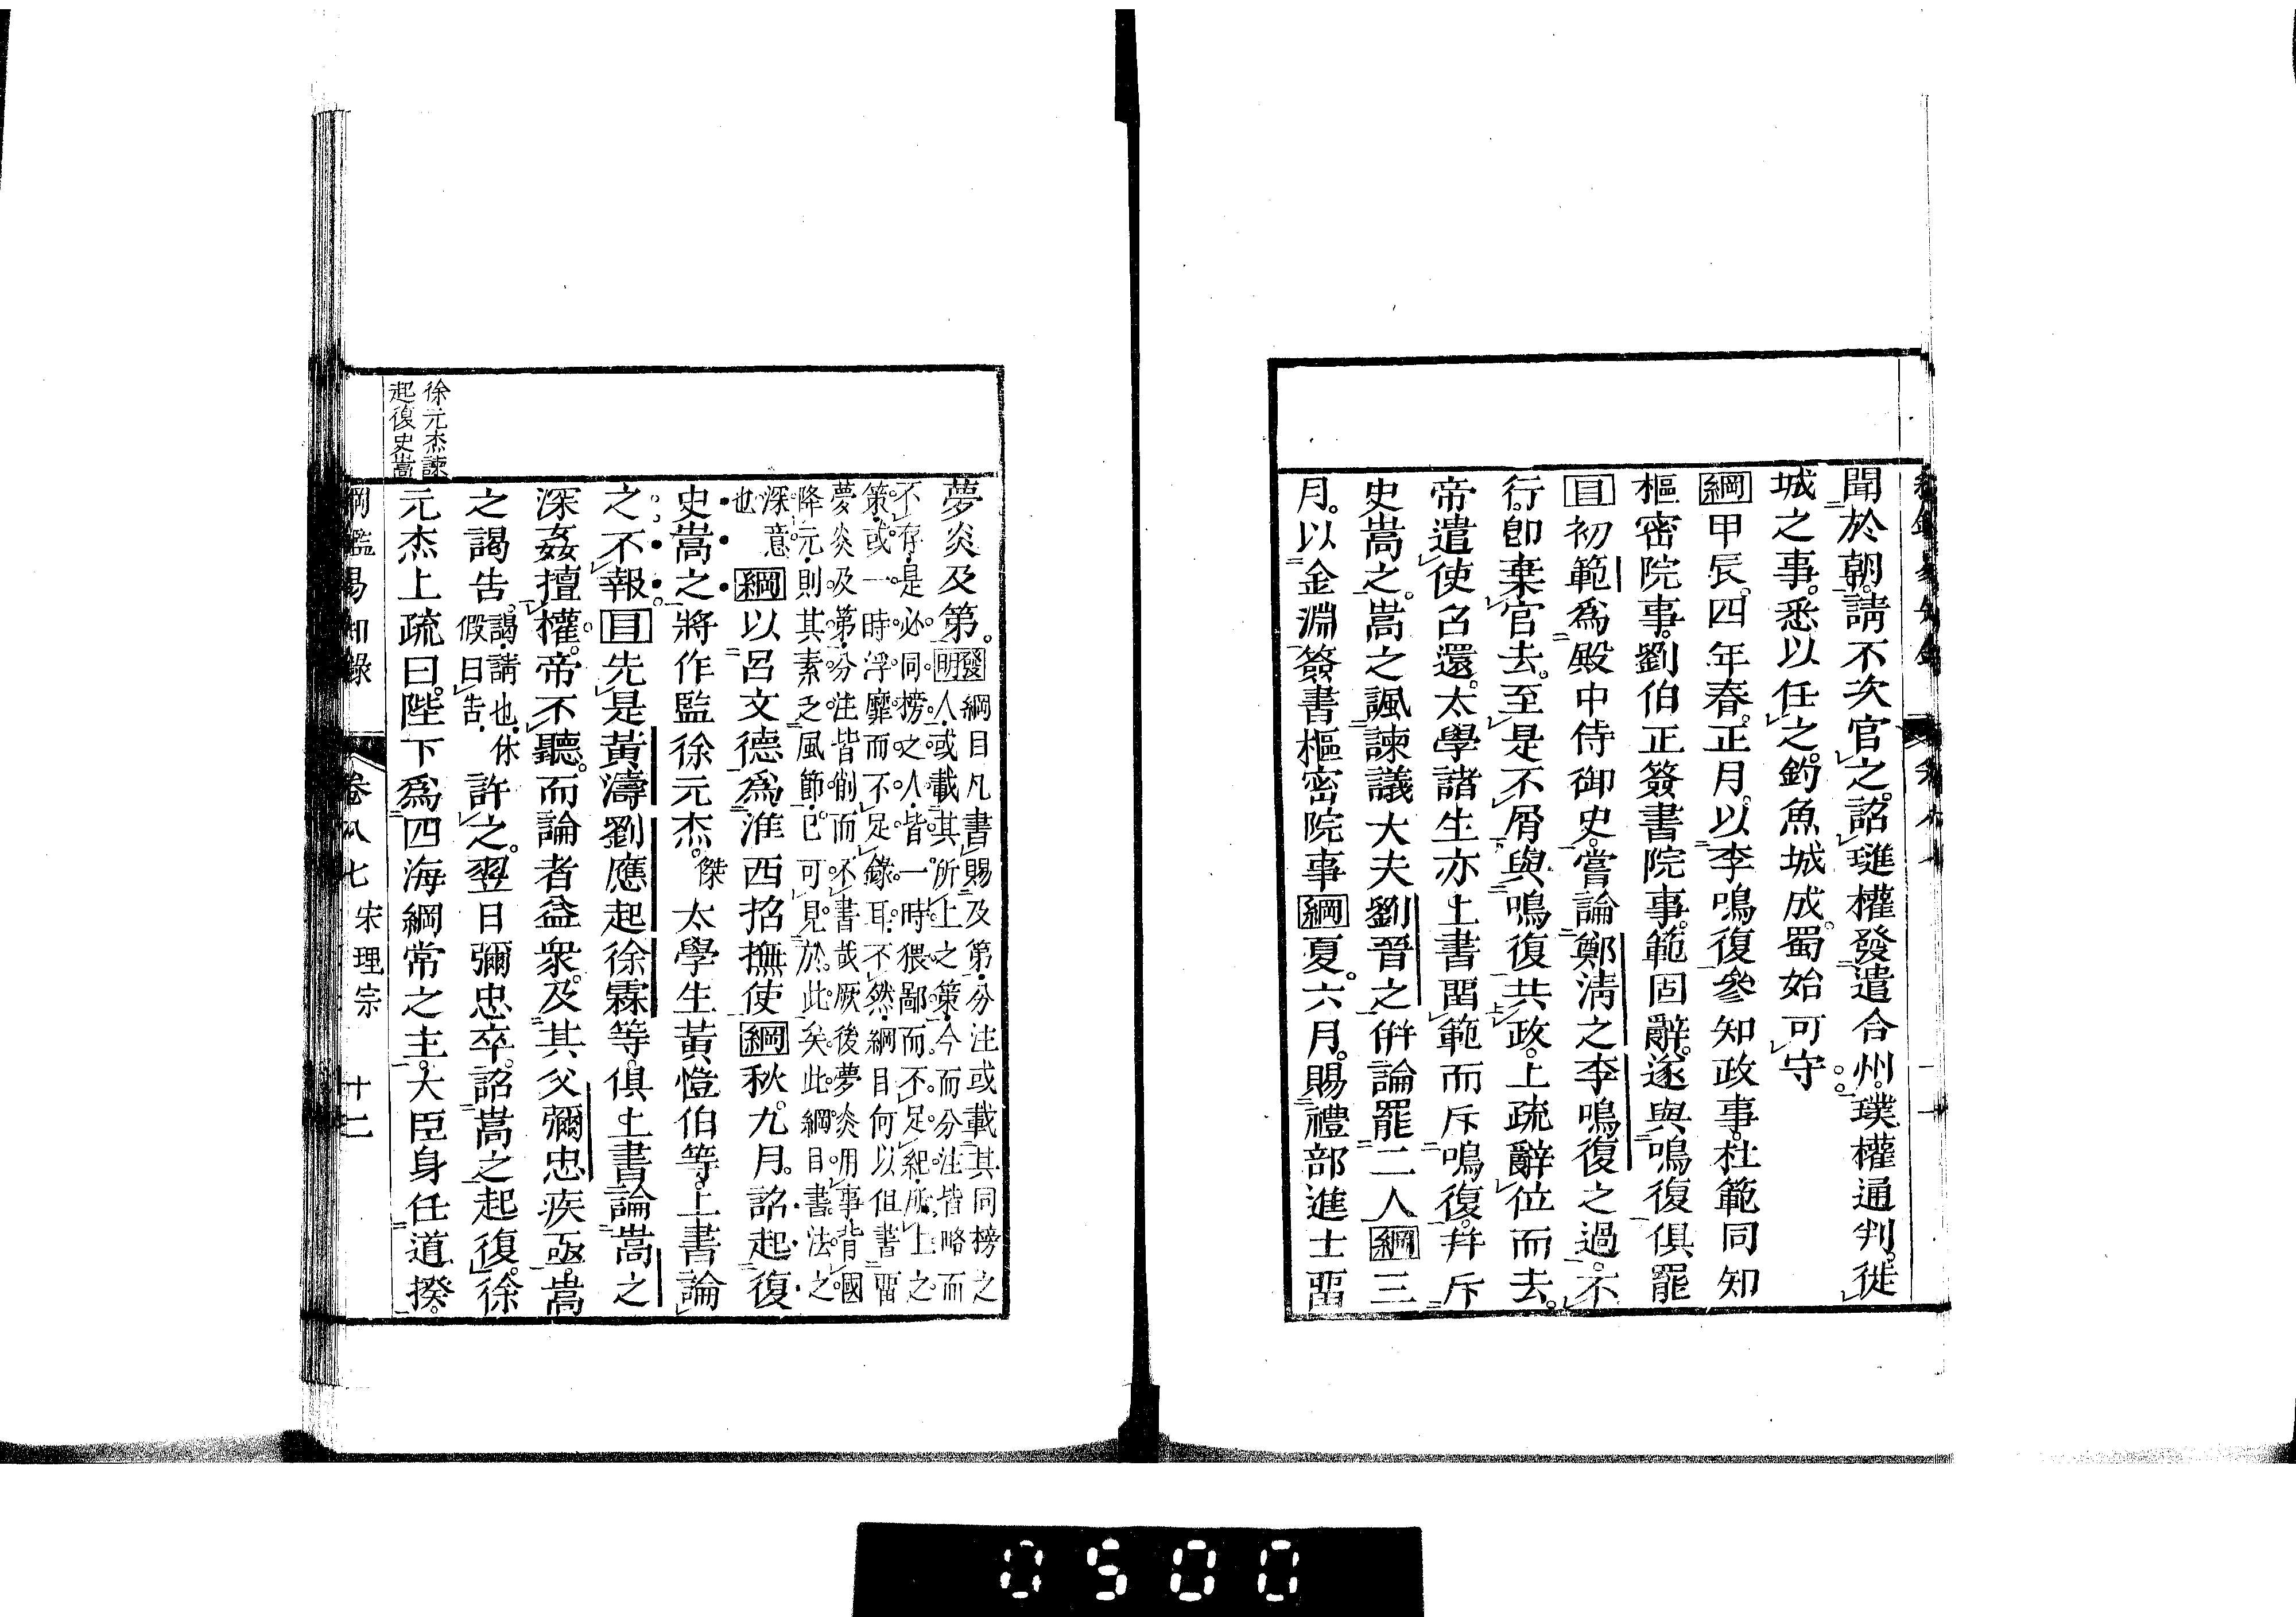 聞於朝。請不次官之。詔璡權發遣合州。璞權通判。徙
城之事。悉以任之。釣魚城成。蜀始可守。
綱甲辰。四年春。正月。以李鳴復參知政事。杜範同知
樞密院事。劉伯正簽書院事。範固辭。遂與鳴復俱罷
目初範爲殿中侍御史。嘗論鄭淸之李鳴復之過。不
行。卽棄官去。至是不屑與鳴復共政。上疏辭位而去。
帝遣使召還。太學諸生亦上書畱範而斥鳴復。幷斥
史嵩之。嵩之諷諫議大夫劉晉之併論罷二人綱三
月。以金淵簽書樞密院事綱夏。六月。賜禮部進士畱
徐元杰諫
起復史嵩
夢炎及第。發明綱目凡書賜及第。分注或載其同榜之
人。或載其所上之策。今而分注皆略而
不存。是必同榜之人。皆一時猥鄙而不足紀。所上之
策。或一時浮靡而不足錄耳。不然。綱目何以但書畱
夢炎及第。分注皆削而不書哉。厥後夢炎用事背國
降元。則其素乏風節。已可見於此矣。此綱目書法之
深意
也
綱以呂文德爲淮西招撫使綱秋。九月。詔起復
史嵩之。將作監徐元杰。傑太學生黃愷伯等。上書論
之不報目先是黃濤劉應起徐霖等。俱上書論嵩之
深姦擅權。帝不聽。而論者益衆。及其父彌忠疾亟。嵩
之謁告。謁。請也。休
假曰告。許之。翌日彌忠卒。詔嵩之起復。徐
元杰上疏曰。陛下爲四海綱常之主。大臣身任道揆。
綱鑑易知錄 卷八七 宋理宗 十二
0500